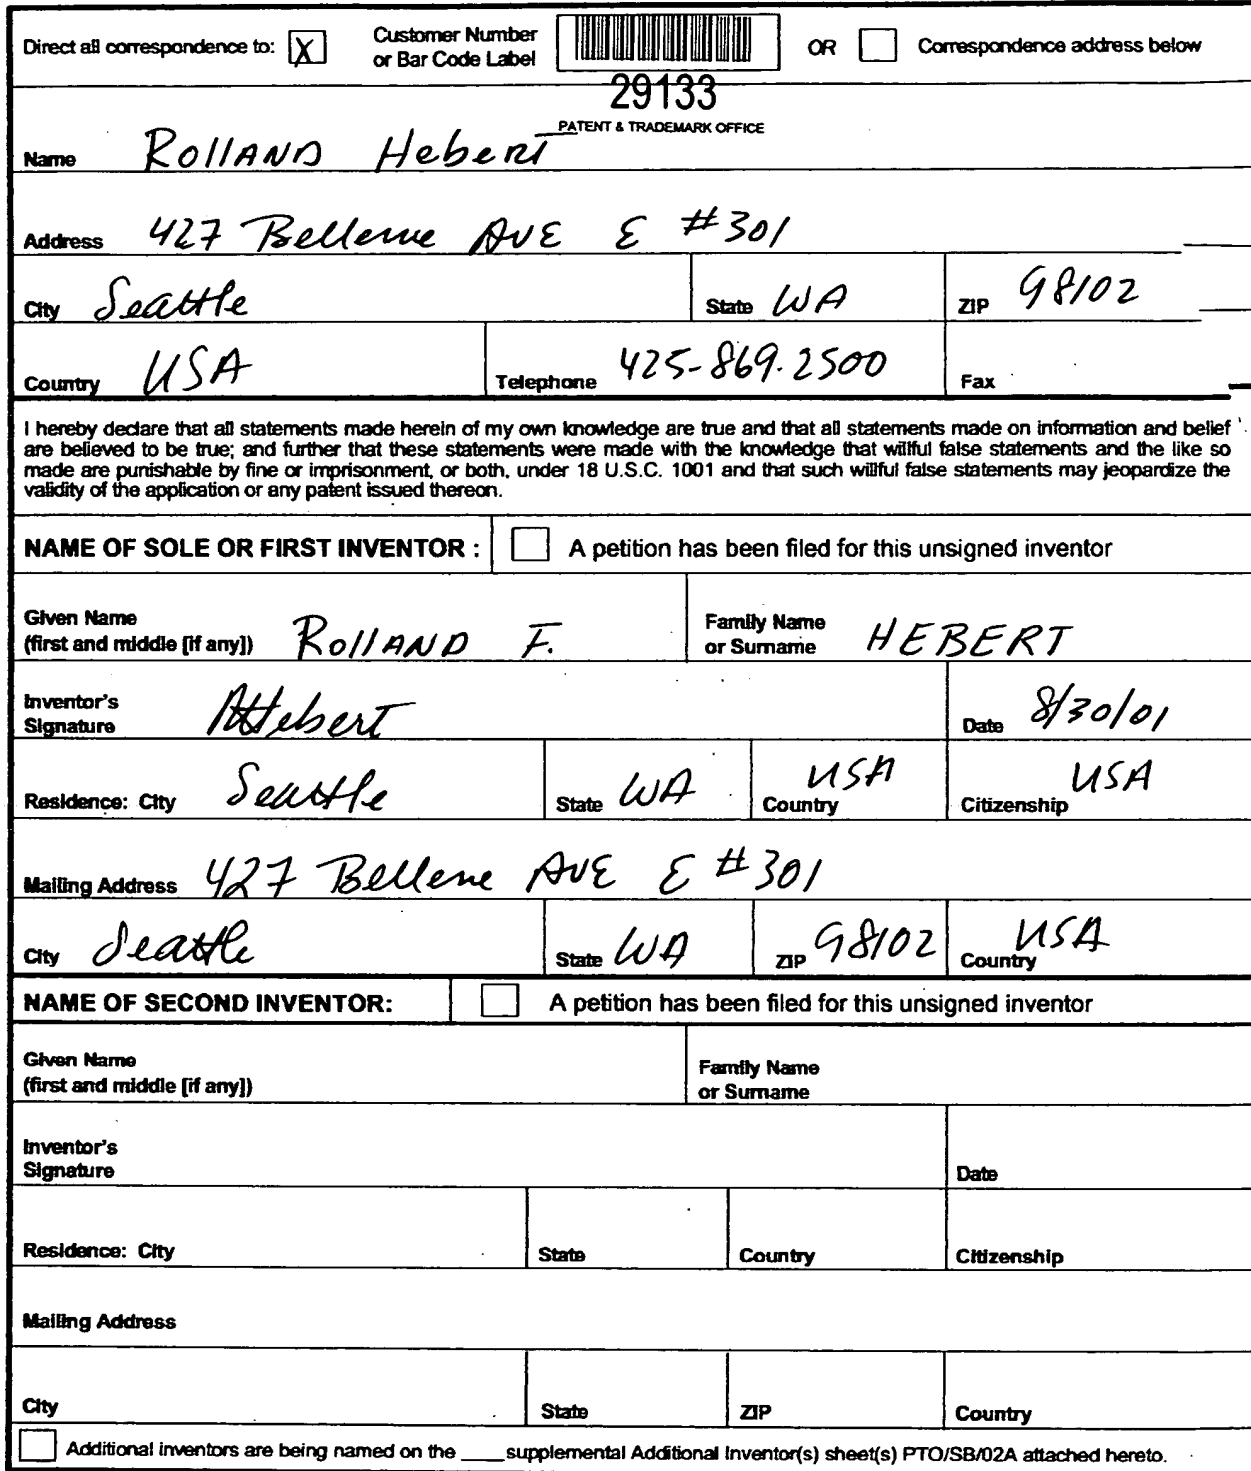 Direct all correspondence to: X Customer Number or Bar Code Label OR Correspondence address below
29133
PATENT & TRADEMARK OFFICE
Name Rolland Hebert
Address 427 Bellevue AVE E #301
City Seattle State WA ZIP 98102
Country USA Telephone 425-869.2500 Fax
I hereby declare that all statements made herein of my own knowledge are true and that all statements made on information and belief
are believed to be true; and further that these statements were made with the knowledge that willful false statements and the like so
made are punishable by fine or imprisonment, or both, under 18 U.S.C. 1001 and that such willful false statements may jeopardize the
validity of the application or any patent issued thereon.
NAME OF SOLE OR FIRST INVENTOR : A petition has been filed for this unsigned inventor
Given Name (first and middle [if any]) Rolland F. Family Name or Surname HEBERT
Inventor's Signature RHebert Date 8/30/01
Residence: City Seattle State WA Country USA Citizenship USA
Mailing Address 427 Bellevue AVE E #301
City Seattle State WA ZIP 98102 Country USA
NAME OF SECOND INVENTOR: A petition has been filed for this unsigned inventor
Given Name (first and middle [if any]) Family Name or Surname
Inventor's Signature Date
Residence: City State Country Citizenship
Mailing Address
City State ZIP Country
Additional inventors are being named on the ____ supplemental Additional Inventor(s) sheet(s) PTO/SB/02A attached hereto.